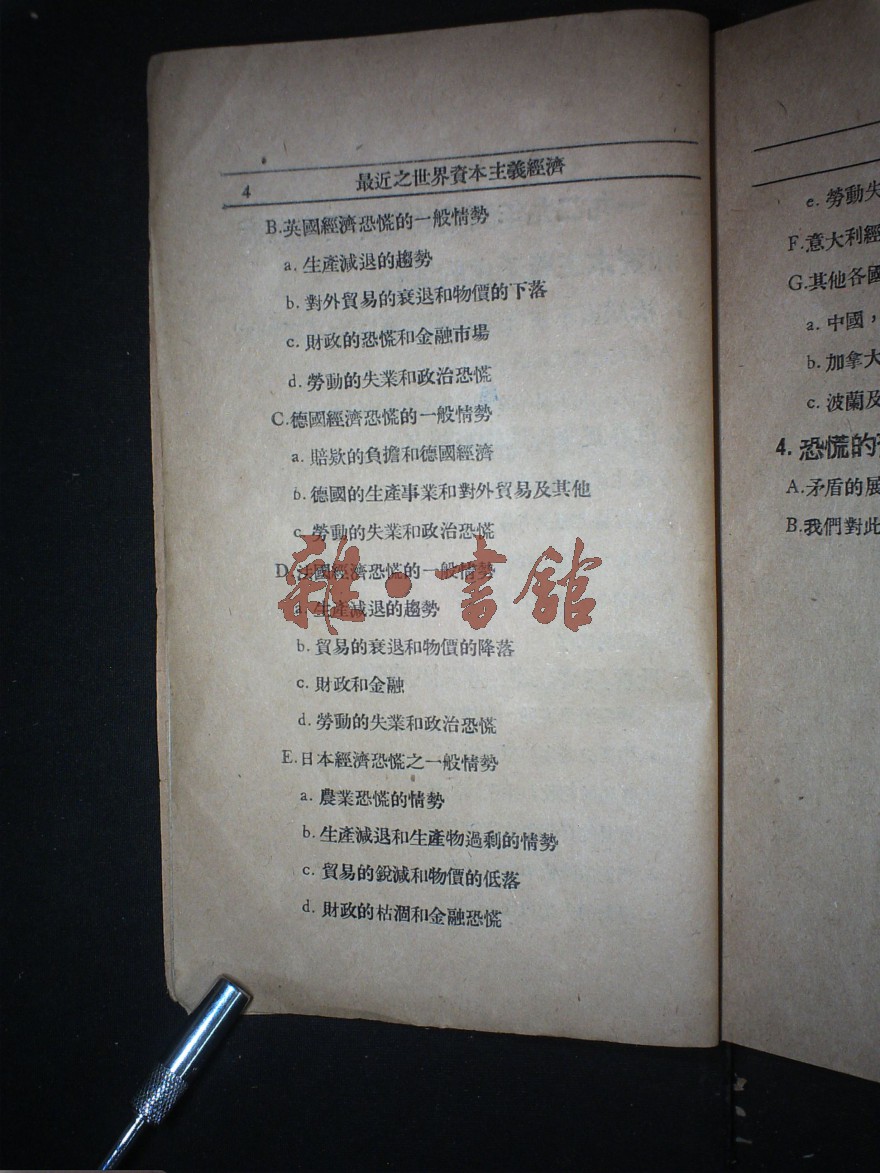 4 最近之世界資本主義經濟
B.英國經濟恐慌的一般情勢
a. 生產減退的趨勢
b. 對外貿易的衰退和物價的下落
c. 財政的恐慌和金融市場
d. 勞動的失業和政治恐慌
C.德國經濟恐慌的一般情勢
a. 賠欵的負擔和德國經濟
b. 德國的生產事業和對外貿易及其他
c. 勞動的失業和政治恐慌
D.法國經濟恐慌的一般情勢
a. 生產減退的趨勢
b. 貿易的衰退和物價的降落
c. 財政和金融
d. 勞動的失業和政治恐慌
E.日本經濟恐慌之一般情勢
a. 農業恐慌的情勢
b. 生產減退和生產物過剩的情勢
c. 貿易的銳減和物價的低落
d. 財政的枯涸和金融恐慌
雜·書舘
e. 勞動失
F.意大利經
G.其他各國
a. 中國，
b. 加拿大
c. 波蘭及
4. 恐慌的
A.矛盾的展
B.我們對此